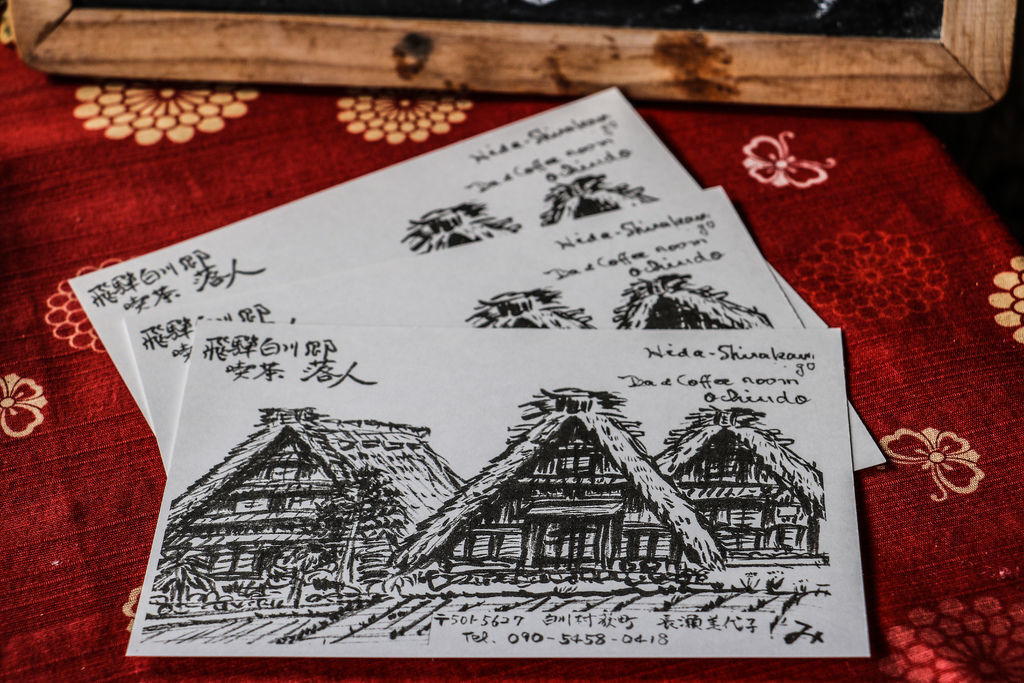 飛騨白川郷
喫茶 落人
Hida-Shirakawa
go
Ba & Coffee room
Ochiudo
飛騨白川郷
喫
Hida-Shirakawa
go
Ba & Coffee room
Ochiudo
飛騨白川郷
喫茶 落人
Hida-Shirakawa
go
Ba & Coffee room
Ochiudo
〒501-5627 白川村荻町 長瀬美代子
Tel. 090-5458-0418